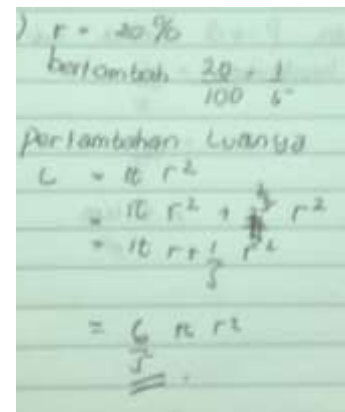 ) r = 20%
bertambah 20/100 = 1/5
pertambahan Luasnya
L = π r²
= π r² + 1/5 r²
= π r + 1/5 r²
= 6/5 π r²